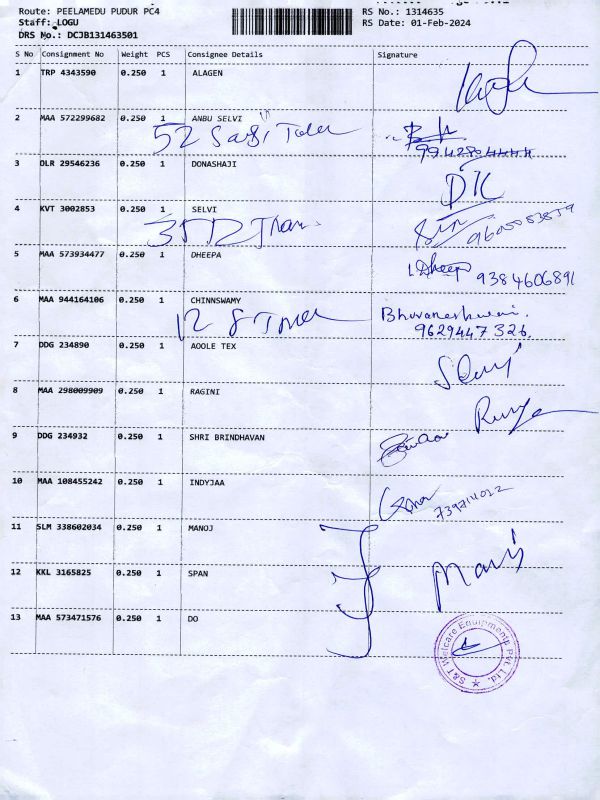 Route: PEELAMEDU PUDUR PC4
RS No.: 1314635
Staff: LOGU
RS Date: 01-Feb-2024
DRS No.: DCJB131463501
S No Consignment No Weight PCS Consignee Details Signature
1 TRP 4343590 0.250 1 ALAGEN
2 MAA 572299682 0.250 1 ANBU SELVI
52
3 DLR 29546236 0.250 1 DONASHAJI
DK
4 KVT 3002853 0.250 1 SELVI
5 MAA 573934477 0.250 1 DHEEPA
Dheepa 9384606891
6 MAA 944164106 0.250 1 CHINNSWAMY
Bhuvaneshwari.
12 9629447326.
7 DDG 234890 0.250 1 AOOLE TEX
8 MAA 298009909 0.250 1 RAGINI
9 DDG 234932 0.250 1 SHRI BRINDHAVAN
10 MAA 108455242 0.250 1 INDYJAA
11 SLM 338602034 0.250 1 MANOJ
12 KKL 3165825 0.250 1 SPAN
13 MAA 573471576 0.250 1 DO
S&T Welcare Equipments Pvt. Ltd.